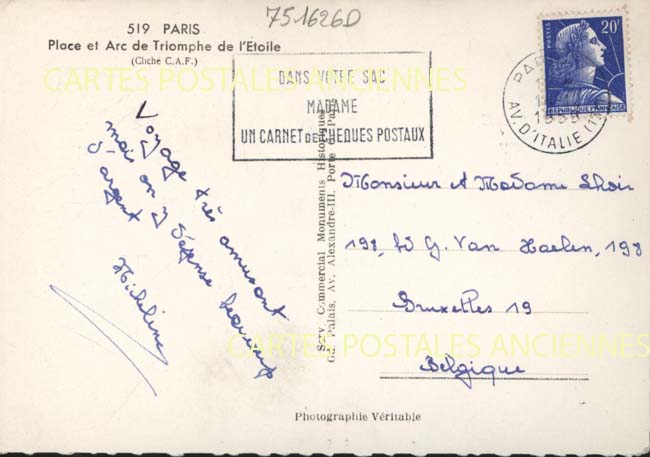 751626D
519 PARIS
Place et Arc de Triomphe de l'Etoile
(Cliché C.A.F.)
CARTES POSTALES ANCIENNES
DANS VOTRE SAC
MADAME
UN CARNET DE CHEQUES POSTAUX
POSTES
20F
REPUBLIQUE FRANÇAISE
AV. D'ITALIE
Voyage très amusant
mais on y dépense beaucoup
d'argent
Micheline
Serv. Commercial Monuments Historiques
Gd Palais, Av. Alexandre-III, Porte Paris
Monsieur et Madame
198, Bd G. Van Haelen, 198
Bruxelles 19
Belgique
CARTES POSTALES ANCIENNES
Photographie Véritable